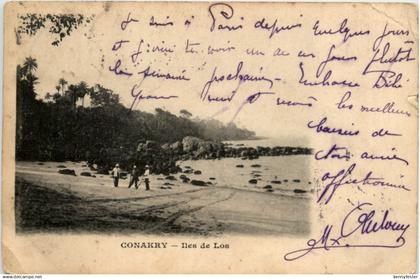 Je suis à Paris depuis Quelques jours
et j'irai te voir un de ces jours plutot
la semaine prochaine. Embrasse Bébé
pour vous et recois les meilleurs
baisers de
votre amie
affectionnée
CONAKRY — Iles de Los